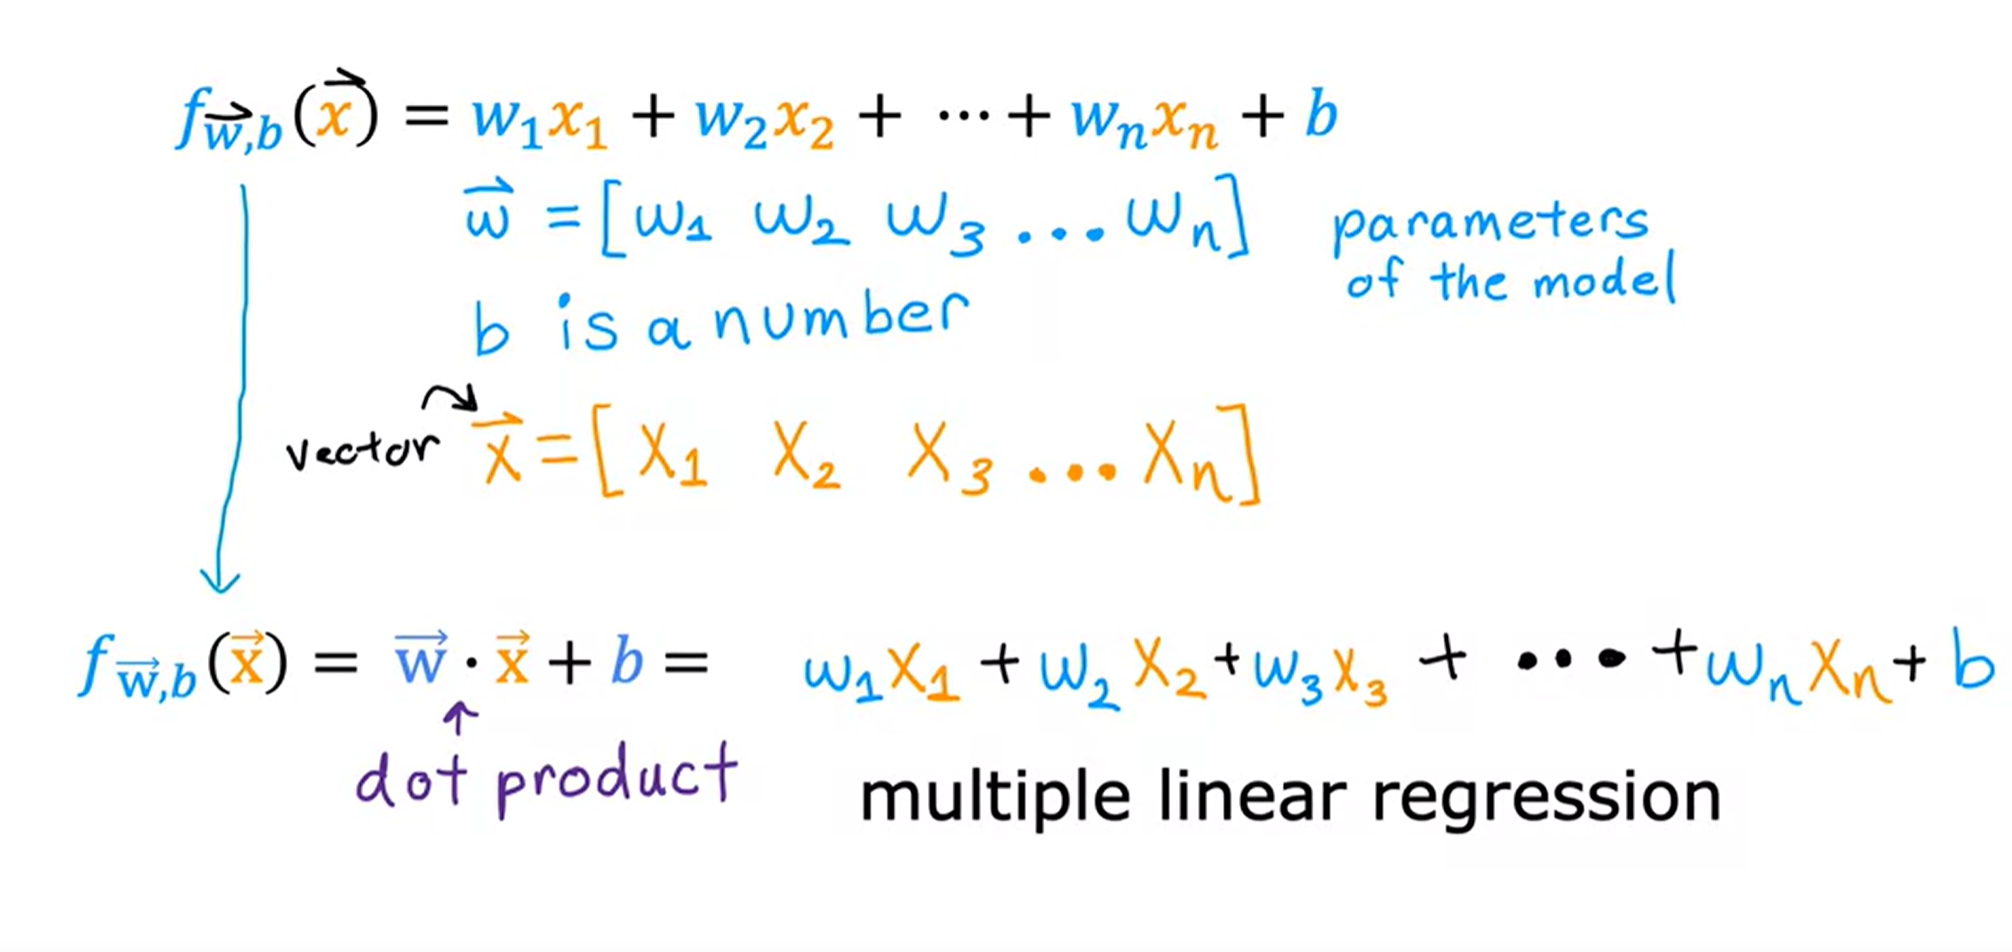 f_{\vec{w},b}(\vec{x}) = w₁x₁ + w₂x₂ + ⋯ + wₙxₙ + b
\vec{w} = [w₁ w₂ w₃ ... wₙ] parameters of the model
b is a number
vector \vec{x} = [x₁ x₂ x₃ ... xₙ]
f_{\vec{w},b}(\vec{x}) = \vec{w} · \vec{x} + b = w₁x₁ + w₂x₂ + w₃x₃ + ... + wₙxₙ + b
dot product
multiple linear regression